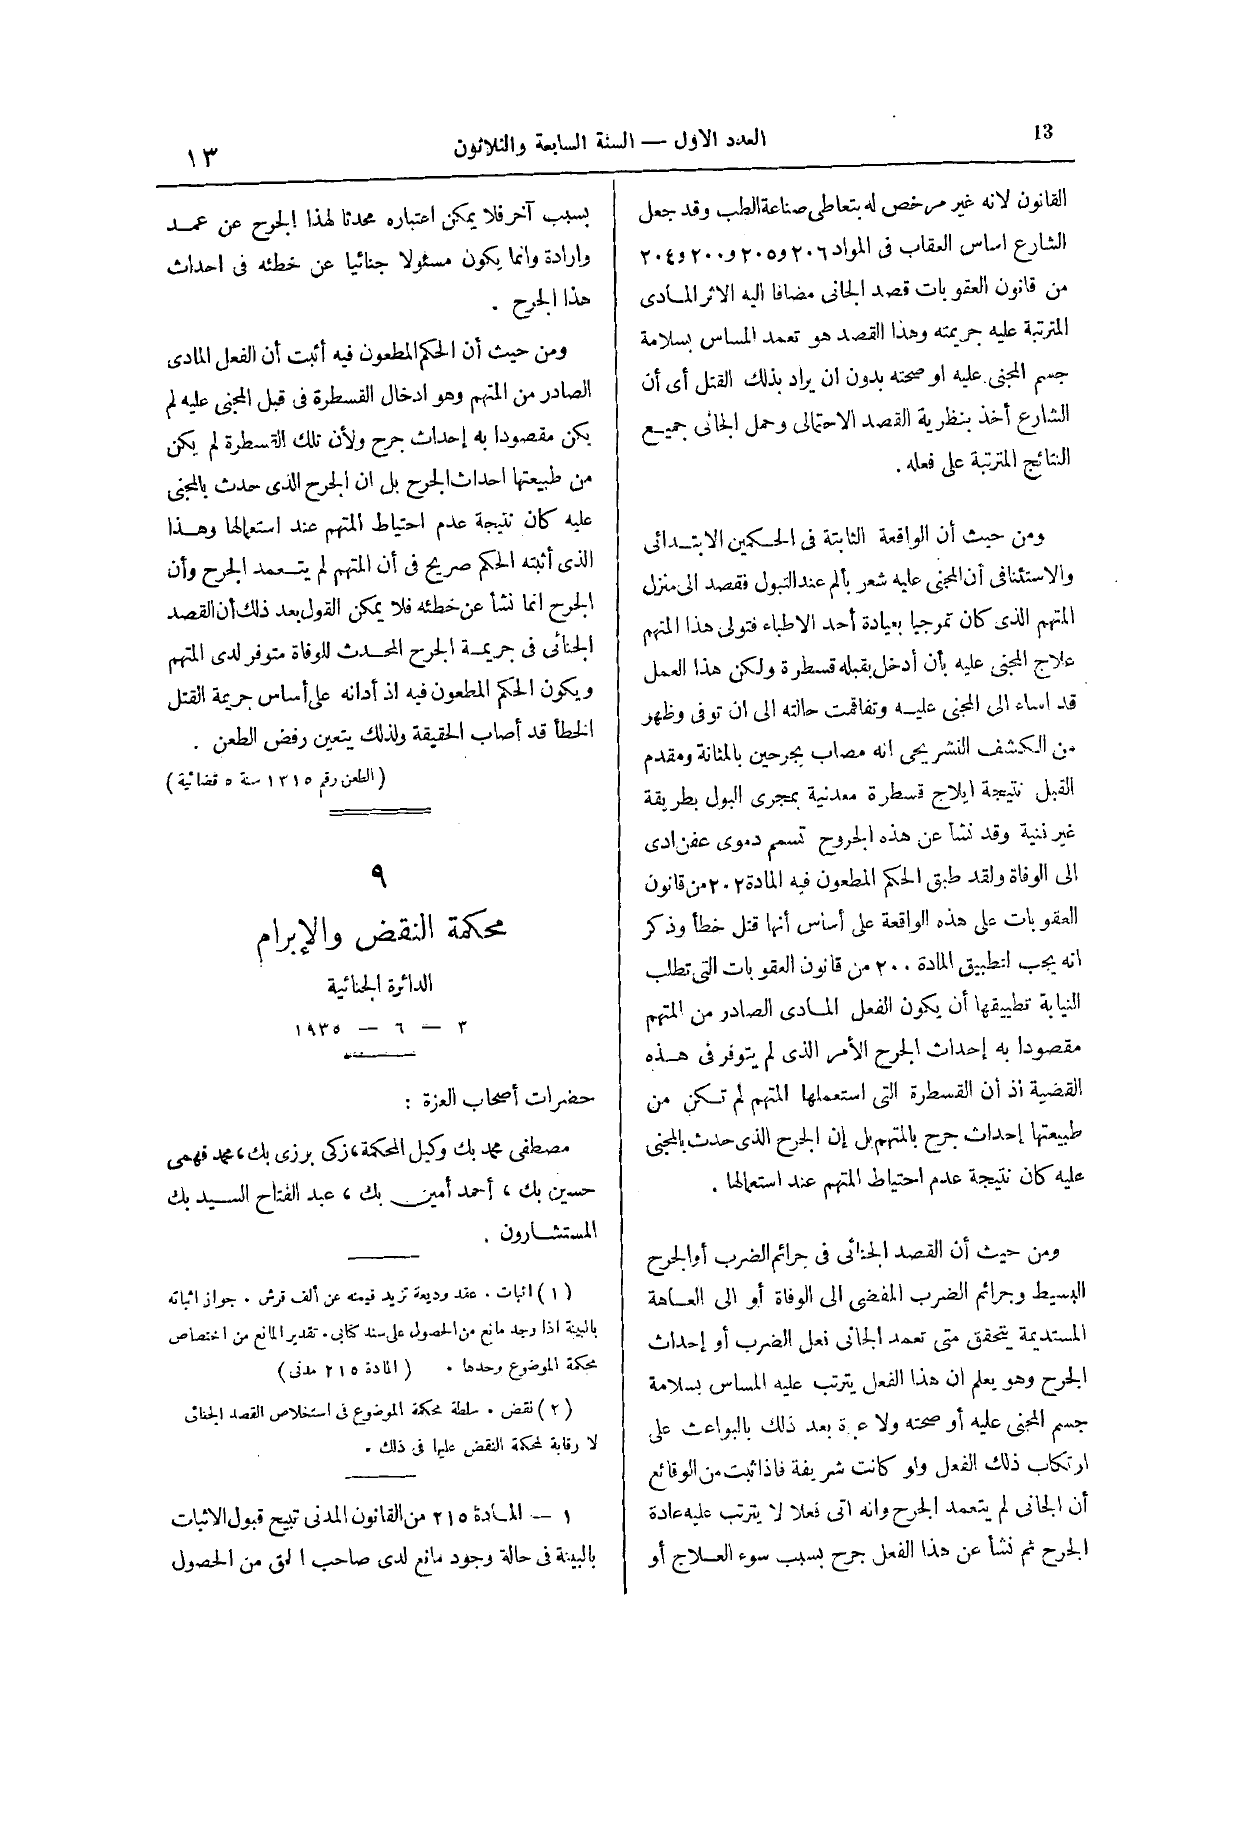 13
العدد الاول — السنة السابعة والثلاثون
١٣
القانون لانه غير مرخص له بتعاطى صناعة الطب وقد جعل
الشارع اساس العقاب فى المواد ٢٠٦ و٢٠٥ و٢٠٠ و٢٠٤
من قانون العقوبات قصد الجانى مضافا اليه الاثر المادى
المترتبة عليه جريمته وهذا القصد هو تعمد المساس بسلامة
جسم المجنى عليه او صحته بدون ان يراد بذلك القتل أى أن
الشارع أخذ بنظرية القصد الاحتمالى وحمل الجانى جميع
النتائج المترتبة على فعله .
ومن حيث أن الواقعة الثابتة فى الحكمين الابتدائى
والاستئنافى أن المجنى عليه شعر بألم عند التبول فقصد الى منزل
المتهم الذى كان تمرجيا بعيادة أحد الاطباء فتولى هذا المتهم
علاج المجنى عليه بأن أدخل بقبله قسطرة ولكن هذا العمل
قد اساء الى المجنى عليه وتفاقمت حالته الى ان توفى وظهر
من الكشف التشريحى انه مصاب بجرحين بالمثانة ومقدم
القبل نتيجة ايلاج قسطرة معدنية بمجرى البول بطريقة
غير فنية وقد نشأ عن هذه الجروح تسمم دموى عفن ادى
الى الوفاة ولقد طبق الحكم المطعون فيه المادة ٢٠٢ من قانون
العقوبات على هذه الواقعة على أساس أنها قتل خطأ وذكر
انه يجب لتطبيق المادة ٢٠٠ من قانون العقوبات التى تطلب
النيابة تطبيقها أن يكون الفعل المادى الصادر من المتهم
مقصودا به إحداث الجرح الأمر الذى لم يتوفر فى هذه
القضية اذ أن القسطرة التى استعملها المتهم لم تكن من
طبيعتها إحداث جرح بالمتهم بل إن الجرح الذى حدث بالمجنى
عليه كان نتيجة عدم احتياط المتهم عند استعمالها .
ومن حيث أن القصد الجنائى فى جرائم الضرب أو الجرح
البسيط وجرائم الضرب المفضى الى الوفاة أو الى العاهة
المستديمة يتحقق متى تعمد الجانى فعل الضرب أو إحداث
الجرح وهو يعلم ان هذا الفعل يترتب عليه المساس بسلامة
جسم المجنى عليه أو صحته ولا عبرة بعد ذلك بالبواعث على
ارتكاب ذلك الفعل ولو كانت شريفة فاذا ثبت من الوقائع
أن الجانى لم يتعمد الجرح وانه اتى فعلا لا يترتب عليه عادة
الجرح ثم نشأ عن هذا الفعل جرح بسبب سوء العلاج أو
بسبب آخر فلا يمكن اعتباره محدثا لهذا الجرح عن عمد
وارادة وانما يكون مسئولا جنائيا عن خطئه فى احداث
هذا الجرح .
ومن حيث أن الحكم المطعون فيه أثبت أن الفعل المادى
الصادر من المتهم وهو ادخال القسطرة فى قبل المجنى عليه لم
يكن مقصودا به إحداث جرح ولأن تلك القسطرة لم يكن
من طبيعتها احداث الجرح بل ان الجرح الذى حدث بالمجنى
عليه كان نتيجة عدم احتياط المتهم عند استعمالها وهذا
الذى أثبته الحكم صريح فى أن المتهم لم يتعمد الجرح وأن
الجرح انما نشأ عن خطئه فلا يمكن القول بعد ذلك أن القصد
الجنائى فى جريمة الجرح المحدث للوفاة متوفر لدى المتهم
ويكون الحكم المطعون فيه اذ أدانه على أساس جريمة القتل
الخطأ قد أصاب الحقيقة ولذلك يتعين رفض الطعن .
( الطعن رقم ١٣١٥ سنة ٥ قضائية )
٩
محكمة النقض والإبرام
الدائرة الجنائية
٣ — ٦ — ١٩٣٥
حضرات أصحاب العزة :
مصطفى محمد بك وكيل المحكمة ، زكى برزى بك ، محمد فهمى
حسين بك ، أحمد أمين بك ، عبد الفتاح السيد بك
المستشارون .
( ١ ) اثبات . عقد وديعة تزيد قيمته عن ألف قرش . جواز اثباته
بالبينة اذا وجد مانع من الحصول على سند كتابى . تقدير المانع من اختصاص
محكمة الموضوع وحدها . ( المادة ٢١٥ مدنى )
( ٢ ) نقض . سلطة محكمة الموضوع فى استخلاص القصد الجنائى
لا رقابة لمحكمة النقض عليها فى ذلك .
١ — المادة ٢١٥ من القانون المدنى تبيح قبول الاثبات
بالبينة فى حالة وجود مانع لدى صاحب الحق من الحصول